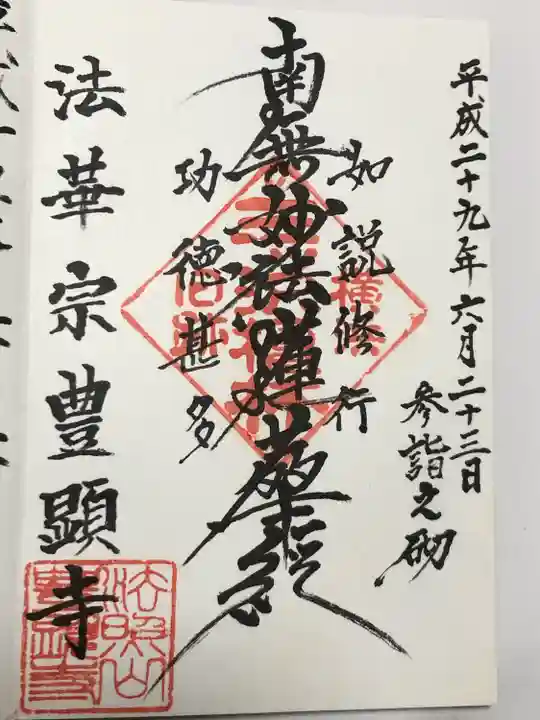 平成二十九年六月二十三日
参詣之砌
如説修行
南無妙法蓮華経
功徳甚多
法華宗豊顕寺
法照山
豊顕寺